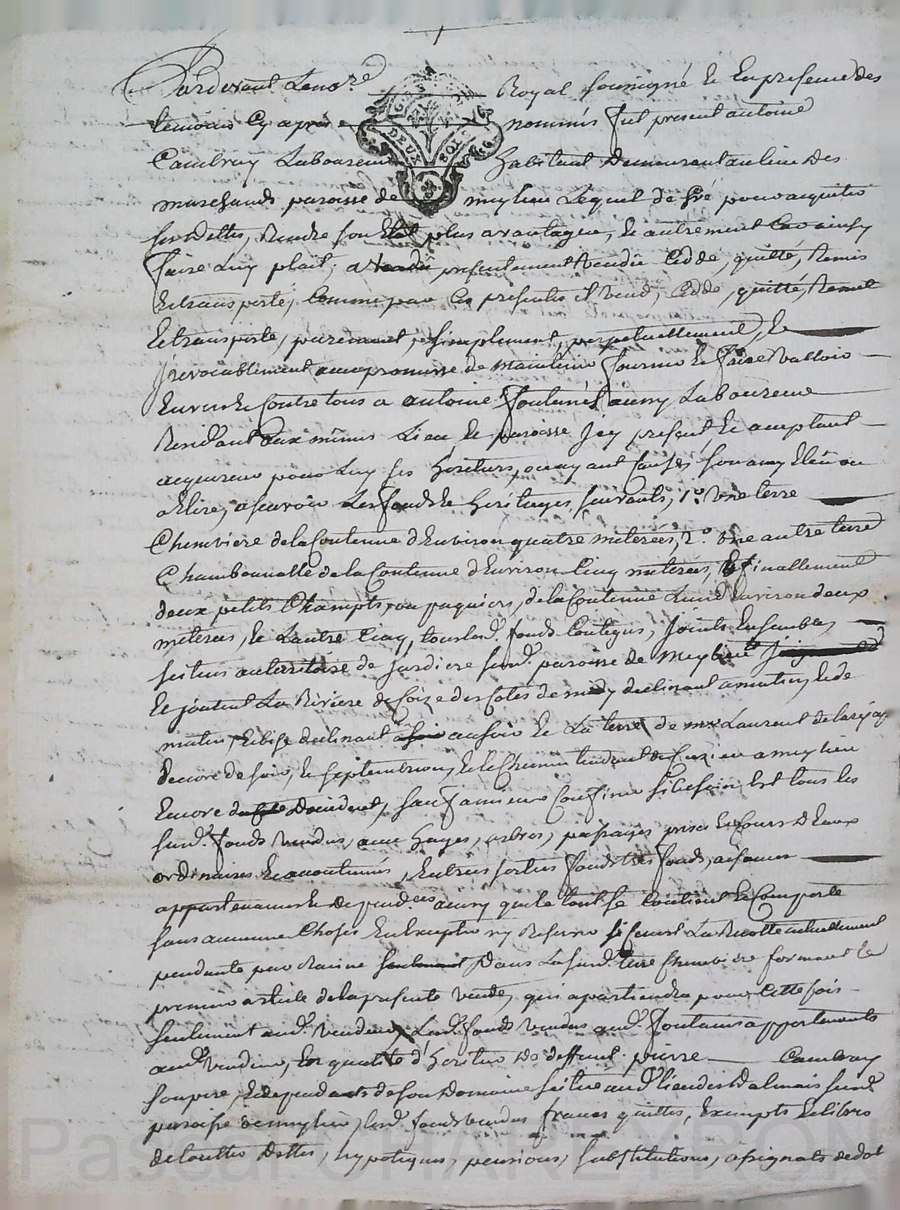 Pardevant Le no.re Royal soussigné et En presence des
temoins Cy apres nommés fut present antoine
Cambray Laboureur habitant demeurant au lieu des
marchands paroisse de meylieu Lequel de gré pour acquitter
ses dettes, Rendre son Etat plus avantageux, et autrement Car ainsy
faire Luy plait, a presentement Vendu Cedé, quitté, Remis
Et transporté, Comme par Ces presentes il Vend, Cede, quitte, Remet
Et transporte, purement, et simplement, perpetuellement, et
jrevocablement avec promesse de Maintenir fournir et faire Valloir
Envers et Contre tous a antoine aussy Laboureur
Residant aux mêmes Lieu et paroisse Jcy present et acceptant
acquereur pour Luy ses heritiers, ou ayant causes son amy Elu ou
a Elire, a scavoir Les fonds et heritages suivants, 1.° Une terre
Cheneviere de la Contenue d'Environ quatre meterées, 2.° Une autre terre
Chambounalle de la Contenue d'Environ Cinq meterées, Et finallement
deux petits Champts, ou paquiers, de la Contenue L'un d'environ deux
meterées, et L'autre Cinq, tous Lesd. fonds Contigus, Joints Ensembles
scitués au territoire de Jardiere susd. paroisse de meylieu
Et joutent La Riviere de Coize des Cotés de midy declinant a matin, et de
matin, Et bize declinant au soir Et La terre de m.re Laurent
Encore de soir, et septembrion, Et le Chemin tendant de a meylieu
Encore d'occident, sauf a mieux Confiner si besoin Est tous les
susd. fonds Vendus, avec hayes, arbres, passages prises Et Cours d'Eaux
ordinaires Et accoutumés, Entrées sorties fonds tres fonds, aisances
appartenances Et dependances ainsy que le tout se Contient Et Comporte
sans aucunes Choses En Excepter ny Reserver si Ce n'est La Recolte actuellement
pendante par Racine Dans La susd. terre cheneviere formant le
premier article de la presente Vente, qui apartiendra pour Cette fois
seulement aud. Vendeur, Lesd. fonds Vendus aud. appartenants
aud. Vendeur, En qualité d'heritier de deffunt pierre Cambray
son pere, Et dependants de son Domaine scitué aud. lieu des susd.
paroisse de meylieu, Lesd. fonds Vendus francs quittes, Exempts Et libres
de touttes Dettes, hypoteques, pensions, substitutions, assignats de dot
Pascal CHAREYRON